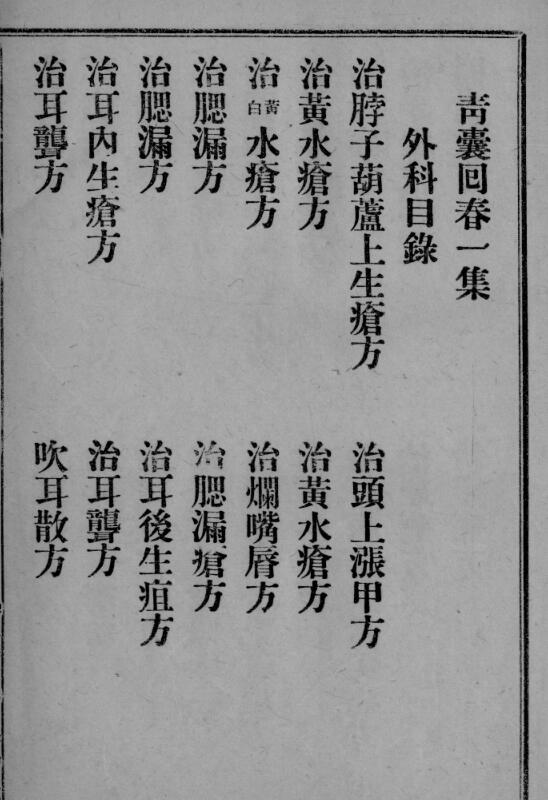 青囊回春一集
外科目錄
治脖子葫蘆上生瘡方　治頭上漲甲方
治黃水瘡方　治黃水瘡方
治黃白水瘡方　治爛嘴脣方
治腮漏方　治腮漏瘡方
治腮漏方　治耳後生疽方
治耳內生瘡方　治耳聾方
治耳聾方　吹耳散方